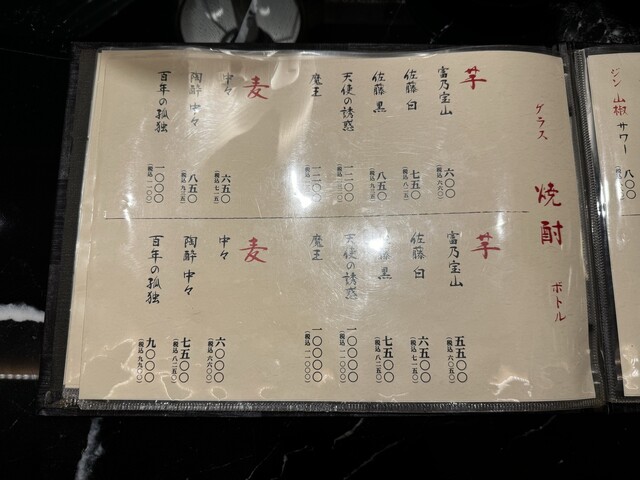 焼酎
グラス
芋
富乃宝山 六〇〇
(税込 六六〇)
佐藤 白 七五〇
(税込 八二五)
佐藤 黒 八五〇
(税込 九三五)
天使の誘惑 一二〇〇
魔王 一二〇〇
麦
中々 六五〇
(税込 七一五)
陶酔 中々 八五〇
(税込 九三五)
百年の孤独 一〇〇〇
(税込 一一〇〇)
ボトル
芋
富乃宝山 五五〇〇
(税込 六〇五〇)
佐藤 白 六五〇〇
(税込 七一五〇)
佐藤 黒 七五〇〇
(税込 八二五〇)
天使の誘惑 一〇〇〇〇
(税込 一一〇〇〇)
魔王 一〇〇〇〇
(税込 一一〇〇〇)
麦
中々 六〇〇〇
(税込 六六〇〇)
陶酔 中々 七五〇〇
(税込 八二五〇)
百年の孤独 九〇〇〇
(税込 九九〇〇)
ジン 山椒 サワー 八〇〇